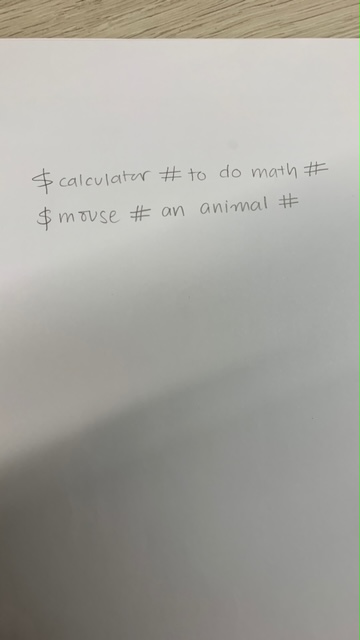 $ calculator # to do math #
$ mouse # an animal #